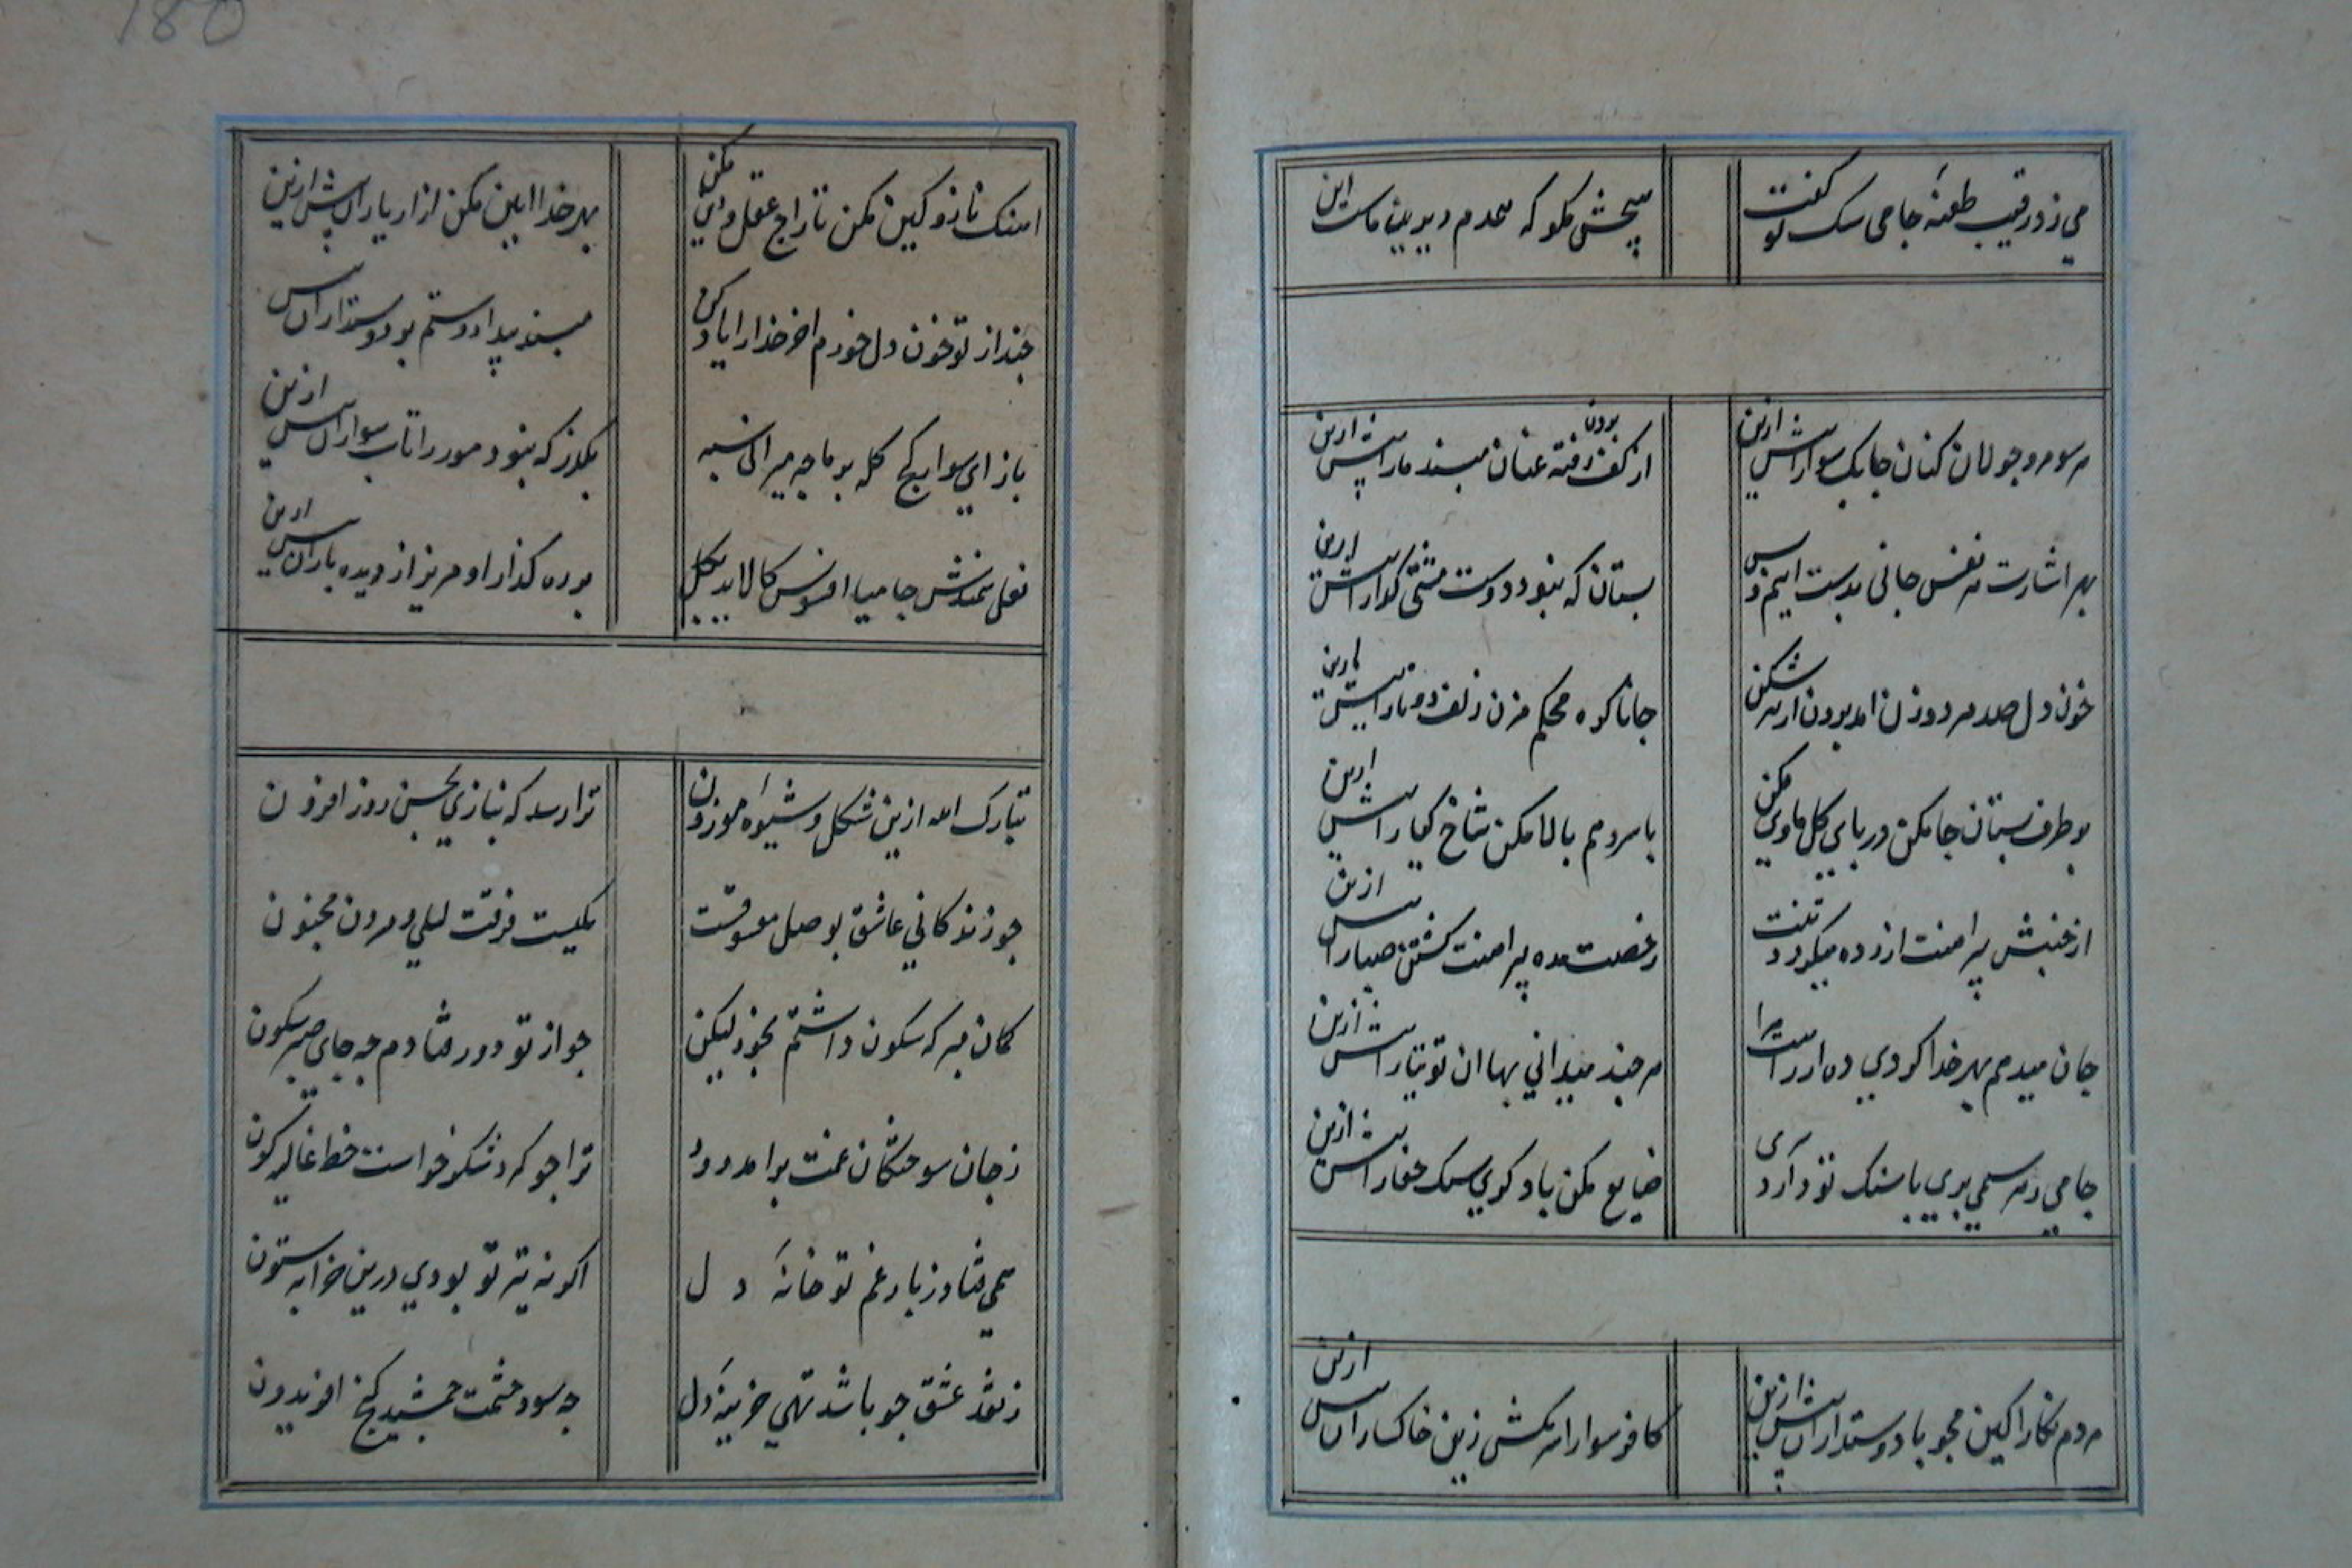 می زد رقیب طعنهٔ جامی سگ تو گفت
هیچش مکو که همدم دیرین ماست این
هر سو مرو جولان کنان چابک سوارا بیش ازین
از کف برون رفته عنان مپسند مارا بیش ازین
بهر اشارت هر نفس جانی بدست آیم و بس
بستان که نبود دوست مشتی کوارا بیش ازین
خون دل صد مرد و زن امد برون از هر شکن
جانا کره محکم مزن زلف دوتا را بیش ازین
بر طرف بستان جا مکن در پای کل ماوی مکن
با سرو هم بالا مکن شاخ کیا را بیش ازین
از جنبش پیراهنت ازرده میکردد تنت
رخصت مده پیرامنت کشتن صبا را بیش ازین
جان میدهم بهر خدا کر دی ده ار راست مرا
هر چند میدانی بها ان توتیا را بیش ازین
جامی ز هر سیمین بری با سنک تو دارد سری
ضایع مکن باد کوی سک جفا را بیش ازین
هر دم نکارا کین مجو با دوستداران بیش ازین
کافر سوارا سر مکش زین خاکساران بیش ازین
اهنک ناز و کین مکن تاراج عقل و دین مکن
بهر خدا این مکن ازار یاران بیش ازین
چند از تو خون دل خورم اخر خدا را یاد کن
مپسند بیداد و ستم بر دوستداران بیش
باز ای سوار کج کله بر ما چه میرانی سپه
بکذر که نبود مور را تاب سواران بیش ازین
نعل سمندش جامیا افسوس کالاید بکل
بر ره کذار او مریز از دیده باران بیش ازین
تبارک الله ازین شکل و شیوهٔ موزون
ترا رسد که بنازی بحسن روز افزون
چو زندکانی عاشق بوصل معشوقست
یکیست فرقت لیلی و مردن مجنون
کمان مبر که سکون داشتم بخود لیکن
چو از تو دور فتادم چه جای صبر و سکون
ز جان سوختکان غمت برامد دود
ترا چو کرد شکر خواست خط غالیه کون
همی فتاد ز بار غم تو خانهٔ دل
اکر نه تیر تو بودی درین خرابه ستون
ز نقد عشق چو باشد تهی خزینهٔ دل
چه سود حشمت جمشید و کنج افریدون
180